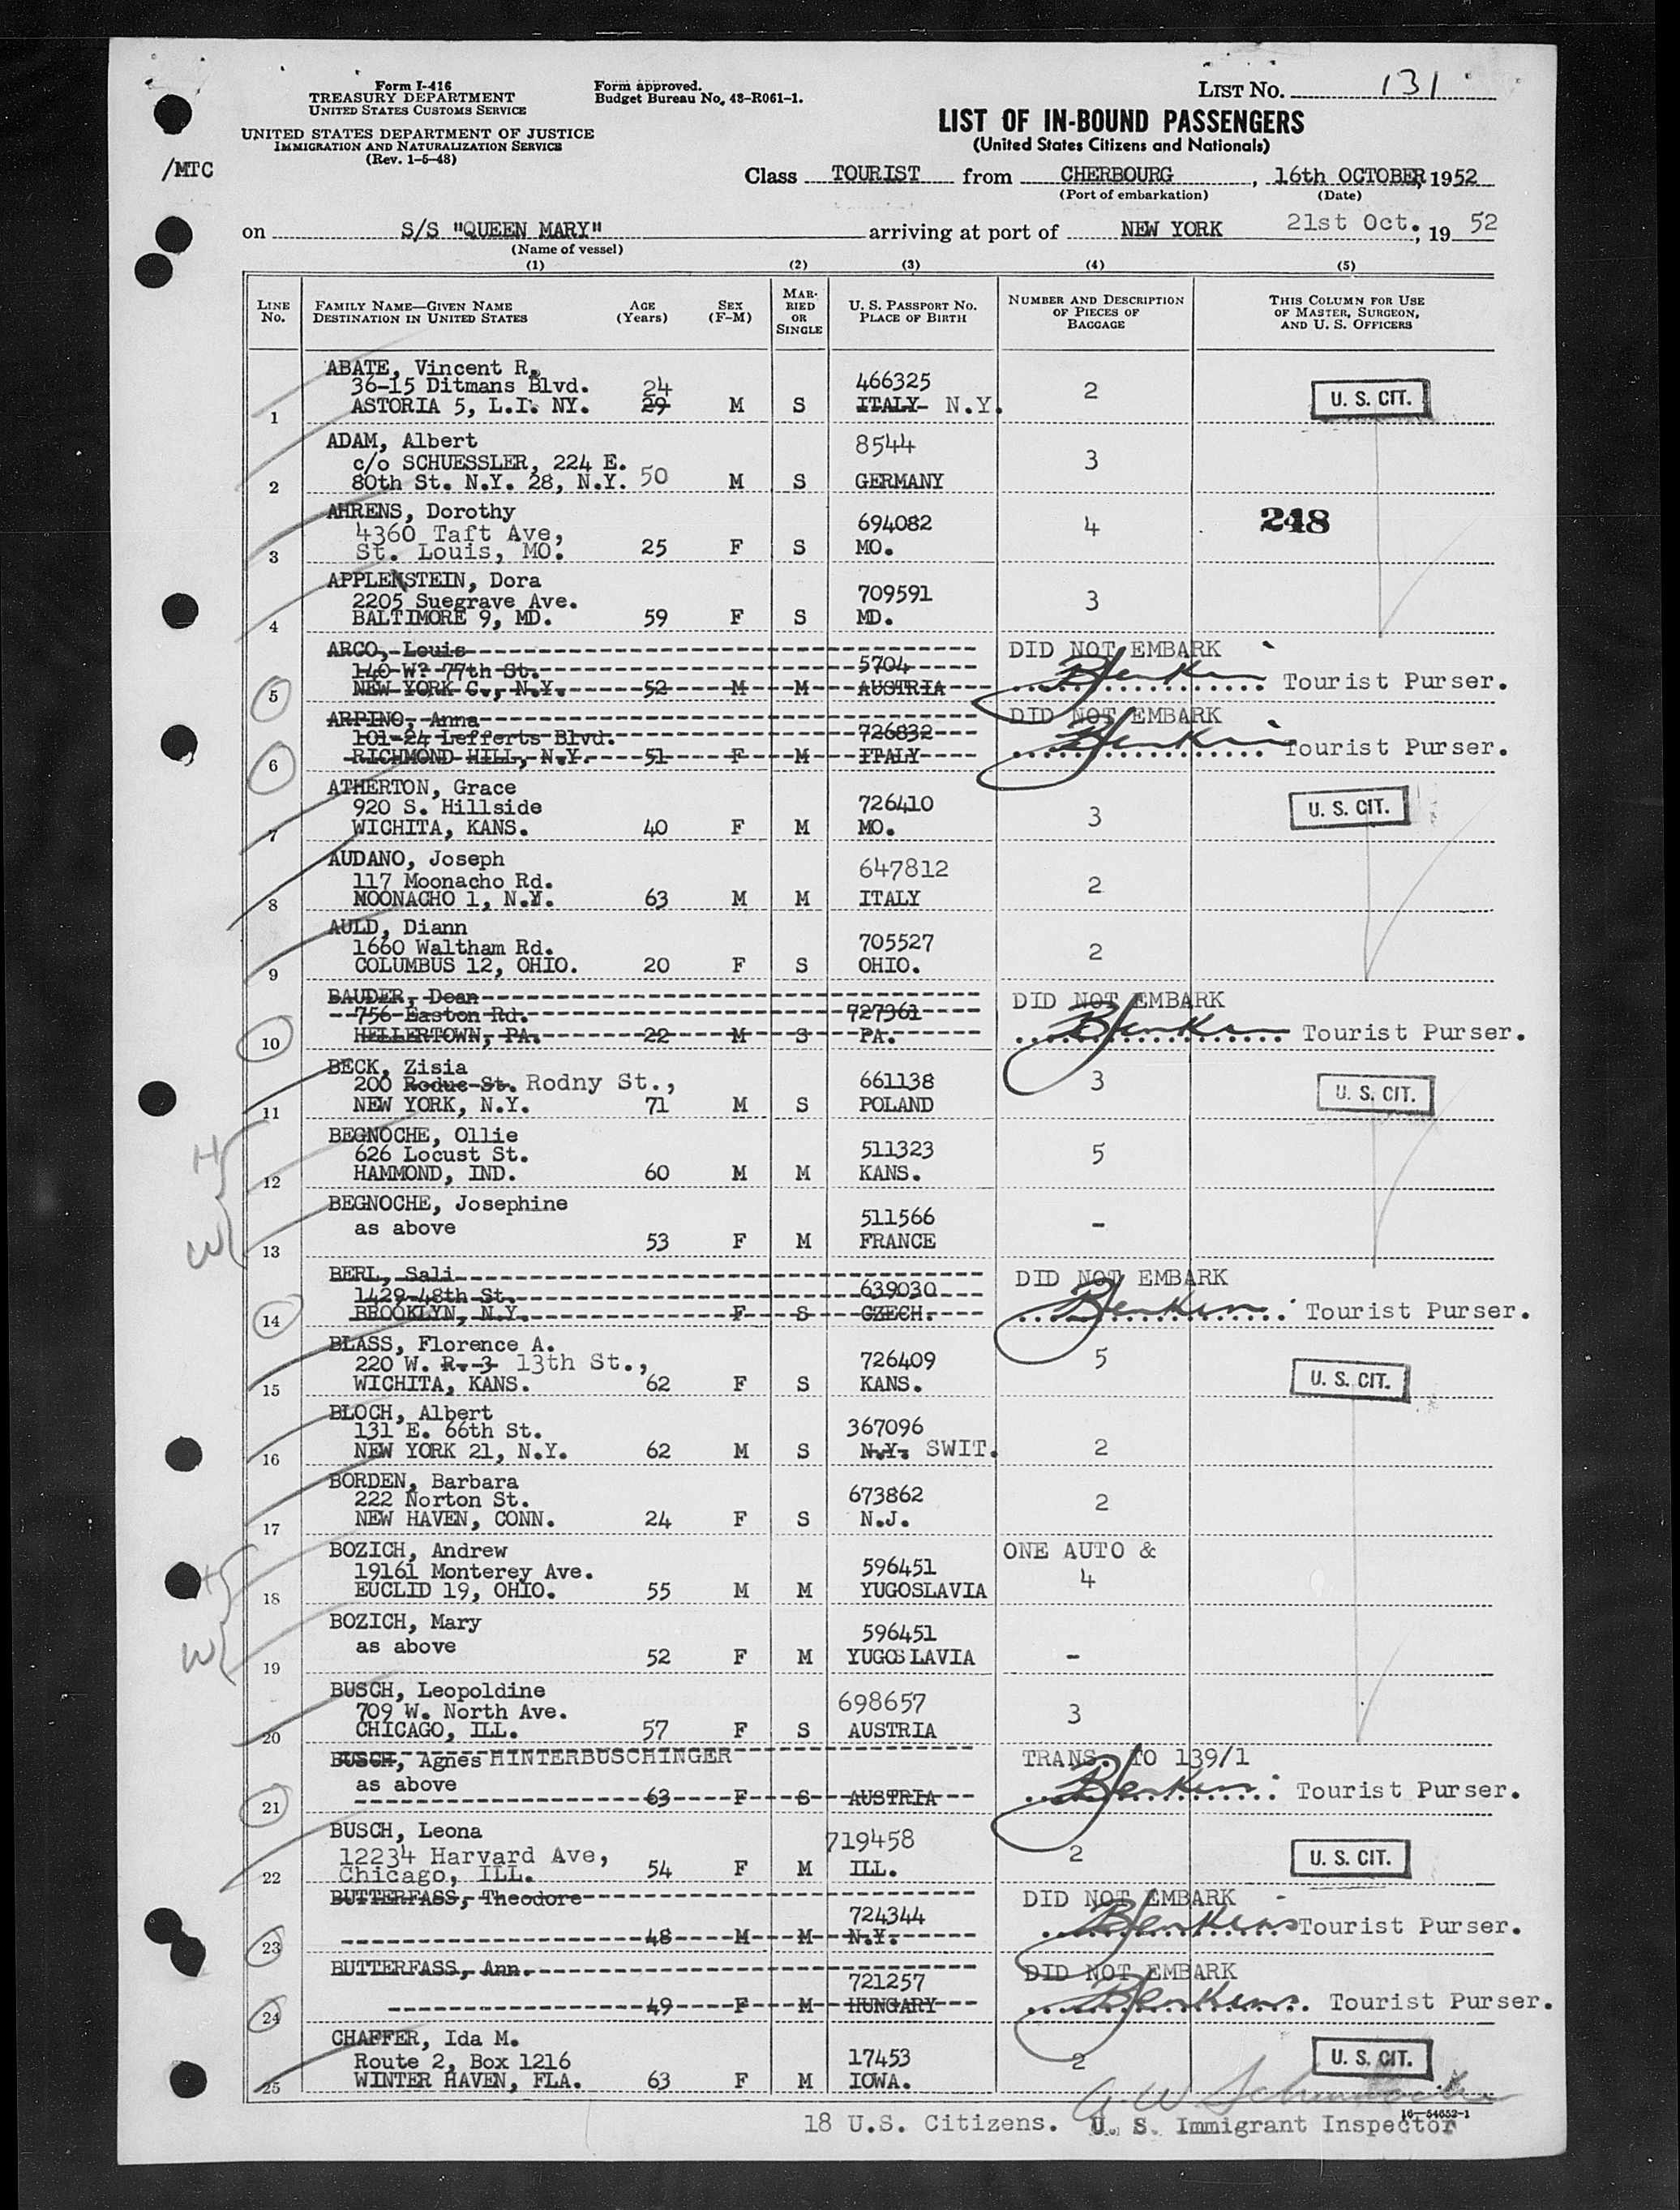 Form I-416
TREASURY DEPARTMENT
UNITED STATES CUSTOMS SERVICE
UNITED STATES DEPARTMENT OF JUSTICE
IMMIGRATION AND NATURALIZATION SERVICE
(Rev. 1-5-48)
Form approved.
Budget Bureau No. 43-R061-1.
LIST NO. 131
LIST OF IN-BOUND PASSENGERS
(United States Citizens and Nationals)
/MTC
Class TOURIST from CHERBOURG, 16th OCTOBER, 1952
(Port of embarkation) (Date)
on S/S "QUEEN MARY" arriving at port of NEW YORK 21st Oct., 19 52
(Name of vessel)
(1) (2) (3) (4) (5)
LINE No. FAMILY NAME—GIVEN NAME DESTINATION IN UNITED STATES AGE (Years) SEX (F-M) MARRIED OR SINGLE U. S. PASSPORT NO. PLACE OF BIRTH NUMBER AND DESCRIPTION OF PIECES OF BAGGAGE THIS COLUMN FOR USE OF MASTER, SURGEON, AND U. S. OFFICERS
ABATE, Vincent R.
36-15 Ditmans Blvd. 24 466325 2 U. S. CIT.
1 ASTORIA 5, L.I. NY. 29 M S ITALY N.Y.
ADAM, Albert 8544
c/o SCHUESSLER, 224 E. 3
2 80th St. N.Y. 28, N.Y. 50 M S GERMANY
AHRENS, Dorothy 694082 4 248
4360 Taft Ave,
3 St. Louis, MO. 25 F S MO.
APPLENSTEIN, Dora 709591 3
2205 Suegrave Ave.
4 BALTIMORE 9, MD. 59 F S MD.
ARCO, Louis DID NOT EMBARK
140 W? 77th St. 5704
5 NEW YORK C., N.Y. 52 M M AUSTRIA Tourist Purser.
ARPINO, Anna DID NOT EMBARK
101-24 Lefferts Blvd. 726832
6 RICHMOND HILL, N.Y. 51 F M ITALY Tourist Purser.
ATHERTON, Grace
920 S. Hillside 726410 3 U. S. CIT.
7 WICHITA, KANS. 40 F M MO.
AUDANO, Joseph 647812
117 Moonacho Rd. 2
8 MOONACHO 1, N.Y. 63 M M ITALY
AULD, Diann
1660 Waltham Rd. 705527 2
9 COLUMBUS 12, OHIO. 20 F S OHIO.
BAUDER, Dean DID NOT EMBARK
756 Easton Rd. 727361
10 HELLERTOWN, PA. 22 M S PA. Tourist Purser.
BECK, Zisia
200 Roduc St. Rodny St., 661138 3 U. S. CIT.
11 NEW YORK, N.Y. 71 M S POLAND
BEGNOCHE, Ollie
626 Locust St. 511323 5
12 HAMMOND, IND. 60 M M KANS.
H
BEGNOCHE, Josephine 511566 -
as above
13 53 F M FRANCE
W
BERL, Sali DID NOT EMBARK
1429-48th St. 639030
14 BROOKLYN, N.Y. F S CZECH. Tourist Purser.
BLASS, Florence A.
220 W. R. 3 13th St., 726409 5 U. S. CIT.
15 WICHITA, KANS. 62 F S KANS.
BLOCH, Albert
131 E. 66th St. 367096
16 NEW YORK 21, N.Y. 62 M S N.Y. SWIT. 2
BORDEN, Barbara
222 Norton St. 673862 2
17 NEW HAVEN, CONN. 24 F S N.J.
BOZICH, Andrew ONE AUTO &
19161 Monterey Ave. 596451 4
18 EUCLID 19, OHIO. 55 M M YUGOSLAVIA
H
BOZICH, Mary 596451
as above
19 52 F M YUGOSLAVIA -
W
BUSCH, Leopoldine 698657
709 W. North Ave. 3
20 CHICAGO, ILL. 57 F S AUSTRIA
BUSCH, Agnes HINTERBUSCHINGER TRANS. TO 139/1
as above
21 63 F S AUSTRIA Tourist Purser.
BUSCH, Leona 719458
12234 Harvard Ave, 2 U. S. CIT.
22 Chicago, ILL. 54 F M ILL.
BUTTERFASS, Theodore DID NOT EMBARK
724344
23 48 M M N.Y. Tourist Purser.
BUTTERFASS, Ann. DID NOT EMBARK
721257
24 49 F M HUNGARY Tourist Purser.
CHAFFER, Ida M.
Route 2, Box 1216 17453 2 U. S. CIT.
25 WINTER HAVEN, FLA. 63 F M IOWA.
16-54652-1
18 U.S. Citizens. U. S. Immigrant Inspector